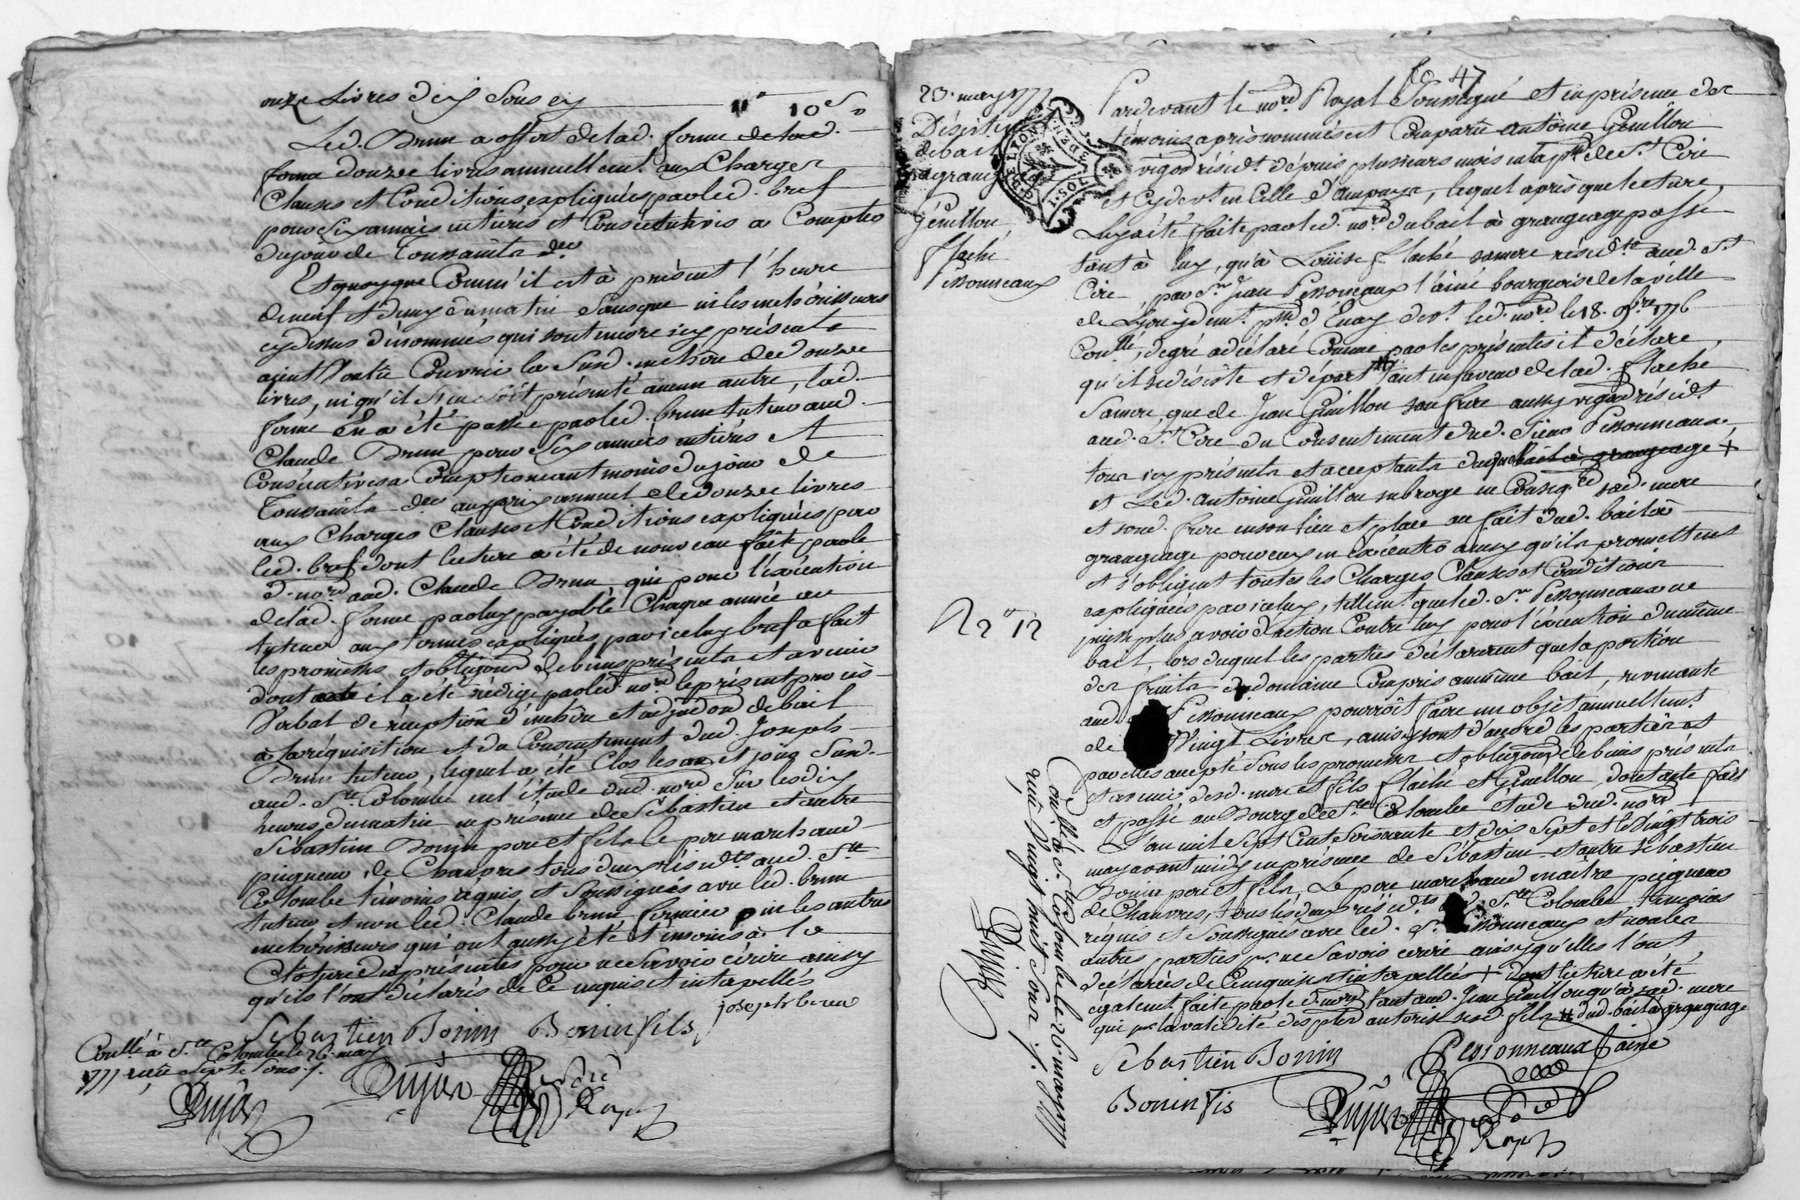 onze Livres dix sous cy 11# 10s
Led. Brun a offert de lad. ferme de lad.
ferme douze livres annuellemt. aux Charges
Clauses et Conditions expliquées par led. bref
pour six années entières et Consecutives a Compter
du jour de Toussaints der
Et quoyque Comm'il est à présent l'heure
de neuf et demy du matin sans que ni les enchérisseurs
cydessus dénommés qui sont encore icy présents
aient Voulu Couvrir la Susd. enchère de douze
livres, ni qu'il s'en soit présenté aucun autre, lad.
ferme En a été passée par led. brun tuteur aud.
Claude Brun pour six années entières et
Consecutives a Compter du jour de
Toussaints der au prix annuel de douze livres
aux Charges Clauses et Conditions expliquées par
led. bref dont lecture a été de nouveau faite par le
d. nore. aud. Claude Brun, qui pour l'exécution
de lad. ferme par luy payable Chaque année au
tuteur aux termes expliqués par iceluy bref a fait
les promesses et obligaons de biens présents et avenir
dont il a été rédigé par led. nore. le présent procès
Verbal de réception d'enchère et adjudon. de bail
à la réquisition et du Consentement dud. Joseph
Brun tuteur, lequel a été Clos les an et jour Susd.
aud. Ste. Colombe en l'étude dud. nore. Sur les dix
heures du matin en présence de Sébastien et autre
Sébastien Bonin père et fils le père marchand
peigneur de Chanvres tous deux résidts. aud. Ste.
Colombe témoins requis et Soussignés avec led. brun
tuteur et non led. Claude brun fermier ni les autres
enchérisseurs qui ont aussy été témoins à la
Cloture des présentes pour ne Savoir écrire ainsy
qu'ils l'ont déclarés de Ce enquis et interpellés
joseph brun
Sebastien Bonin Bonin fils
Coullé à Ste. Colombe le 26 may
1777 reçu Sept Sous
Dujar
Dujar
Royal
fo 47
23. may 1777
Désistemt
de bail
à grang
Guillon
flaché
Pessonneaux
Pardevant le nore. Royal Soussigné et en présence des
témoins après nommés est Comparu antoine Guillon
vigon résidt. depuis plusieurs mois en la psse. de St. Cire
et Cydevt. en Celle d'ampuys, lequel après que lecture
Luy a été faite par led. nore. du bail à grangeage passé
tant à luy, qu'à Louise flaché sa mère résidte. aud. St.
Cire, par Sr. Jean Pessonneaux l'ainé bourgeois de la ville
de Lyon devt. led. nore. le 18. 9bre. 1776
Coullé, de gré a déclaré Comme par les présentes il déclare,
qu'il se désiste et départ # tant en faveur de lad. flaché
Sa mère que de Jean Guillon son frère aussy vigon résidt.
aud. St. Cire du Consentement dud. Sieur Pessonneaux,
tous icy présents et acceptants +
et Led. Antoine Guillon subroge en Conseqce. sad. mère
et sond. frère en son lieu et place au fait dud. bail à
grangeage pour eux en exécuter ainsy qu'ils promettent
et s'obligent toutes les Charges Clauses et Conditions
expliquées par iceluy, tellemt que led. Sr. Pessonneaux ne
puisse plus avoir d'action Contre luy pour l'exécution du même
bail, lors duquel les parties déclarèrent que la portion
des fruits du domaine Compris au même bail, revenante
aud. Pessonneaux pourroit faire un objet annuellemt.
de Vingt Livres, ainsy sont d'accord les parties et
par elles accepté sous les promesses et obligaons de biens présents
et avenir desd. mère et fils flaché et Guillon dont acte fait
et passé au Bourg de Ste. Colombe etude dud. nore.
L'an mil Sept Cent Soixante et dix Sept et le vingt trois
may avant midy en présence de Sébastien et autre Sébastien
Bonin père et fils, Le père marchand maître peigneur
de Chanvres, tous les deux résidts. Ste. Colombe témoins
requis et Soussignés avec led. Sr. Pessonneaux et non les
autres parties pr. ne savoir écrire ainsy qu'elles l'ont
déclarées de Ce enquises et interpellées + dont lecture a été
également faite par led. nore. tant aud. Jean Guillon qu'à sad. mère
qui pr. la validité des pntes autorise sesd. fils # dud. bail à grangeage
Sebastien Bonin Pessonneaux Lainé
Bonin fils Dujar
Royal
R 2# 12
Coullé à Ste. Colombe le 26 may 1777
reçu Vingt huit Sous
Dujar